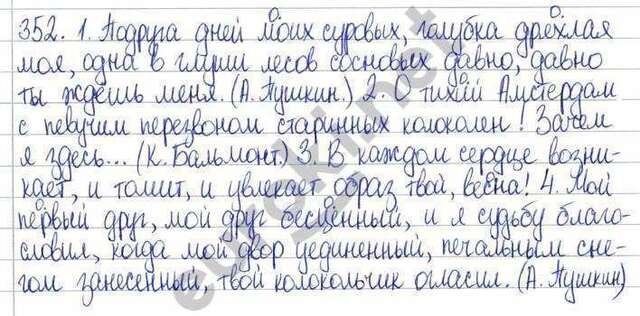 352. 1. Подруга дней моих суровых, голубка дряхлая
моя, одна в глуши лесов сосновых давно, давно
ты ждёшь меня. (А. Пушкин.) 2. О тихий Амстердам
с певучим перезвоном старинных колоколен! Зачем
я здесь... (К. Бальмонт.) 3. В каждом сердце возни-
кает, и томит, и увлекает образ твой, весна! 4. Мой
первый друг, мой друг бесценный, и я судьбу благо-
словил, когда мой двор уединенный, печальным сне-
гом занесенный, твой колокольчик огласил. (А. Пушкин)
eurokinet